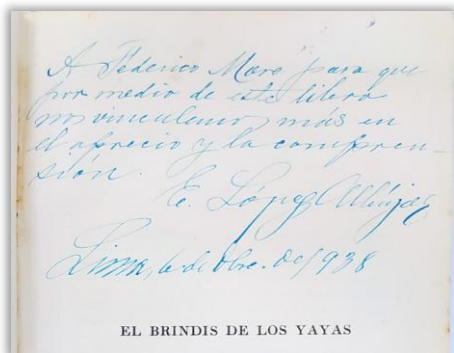 A Federico More para que
por medio de este libro
nos vinculemos más en
el aprecio y la compren-
sión.
E. López Albújar
Lima, 6 de Dbre. de 1938
EL BRINDIS DE LOS YAYAS